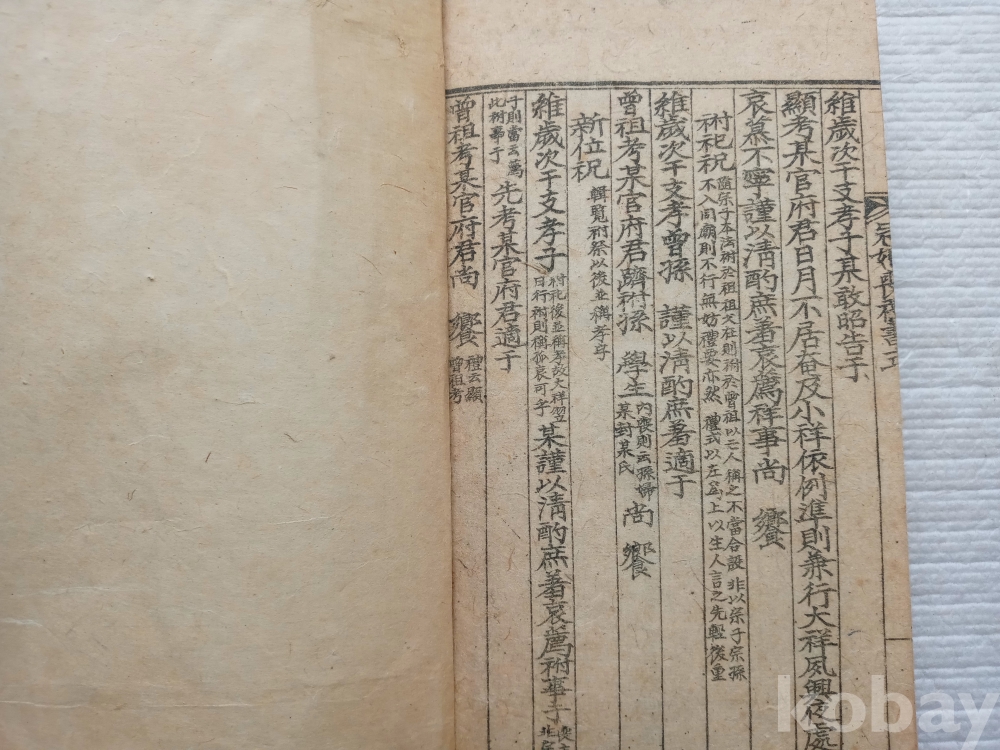 維歲次干支孝子某敢昭告于
顯考某官府君日月不居奄及小祥依例準則兼行大祥夙興夜處
哀慕不寧謹以清酌庶羞哀薦祥事尚 饗
祔祀祝 隨宗子本法祔於祖祖父在則祔於曾祖以亡人稱之不當合設 非以宗子宗孫
不入同廟則不行無妨禮要亦然 禮式以左爲上以生人言之先輕後重
維歲次干支孝曾孫 謹以清酌庶羞適于
曾祖考某官府君隮祔孫 學生 內喪則云孫婦
某封某氏 尚 饗
新位祝 輯覽祔祭以後並稱孝子
維歲次干支孝子 祔祀後並稱孝故大祥翌
日行祔則稱孤哀可乎 某謹以清酌庶羞哀薦祔事于
子則當云薦
此祔事于 先考某官府君適于
曾祖考某官府君尚 饗 禮云顯
曾祖考
kobay